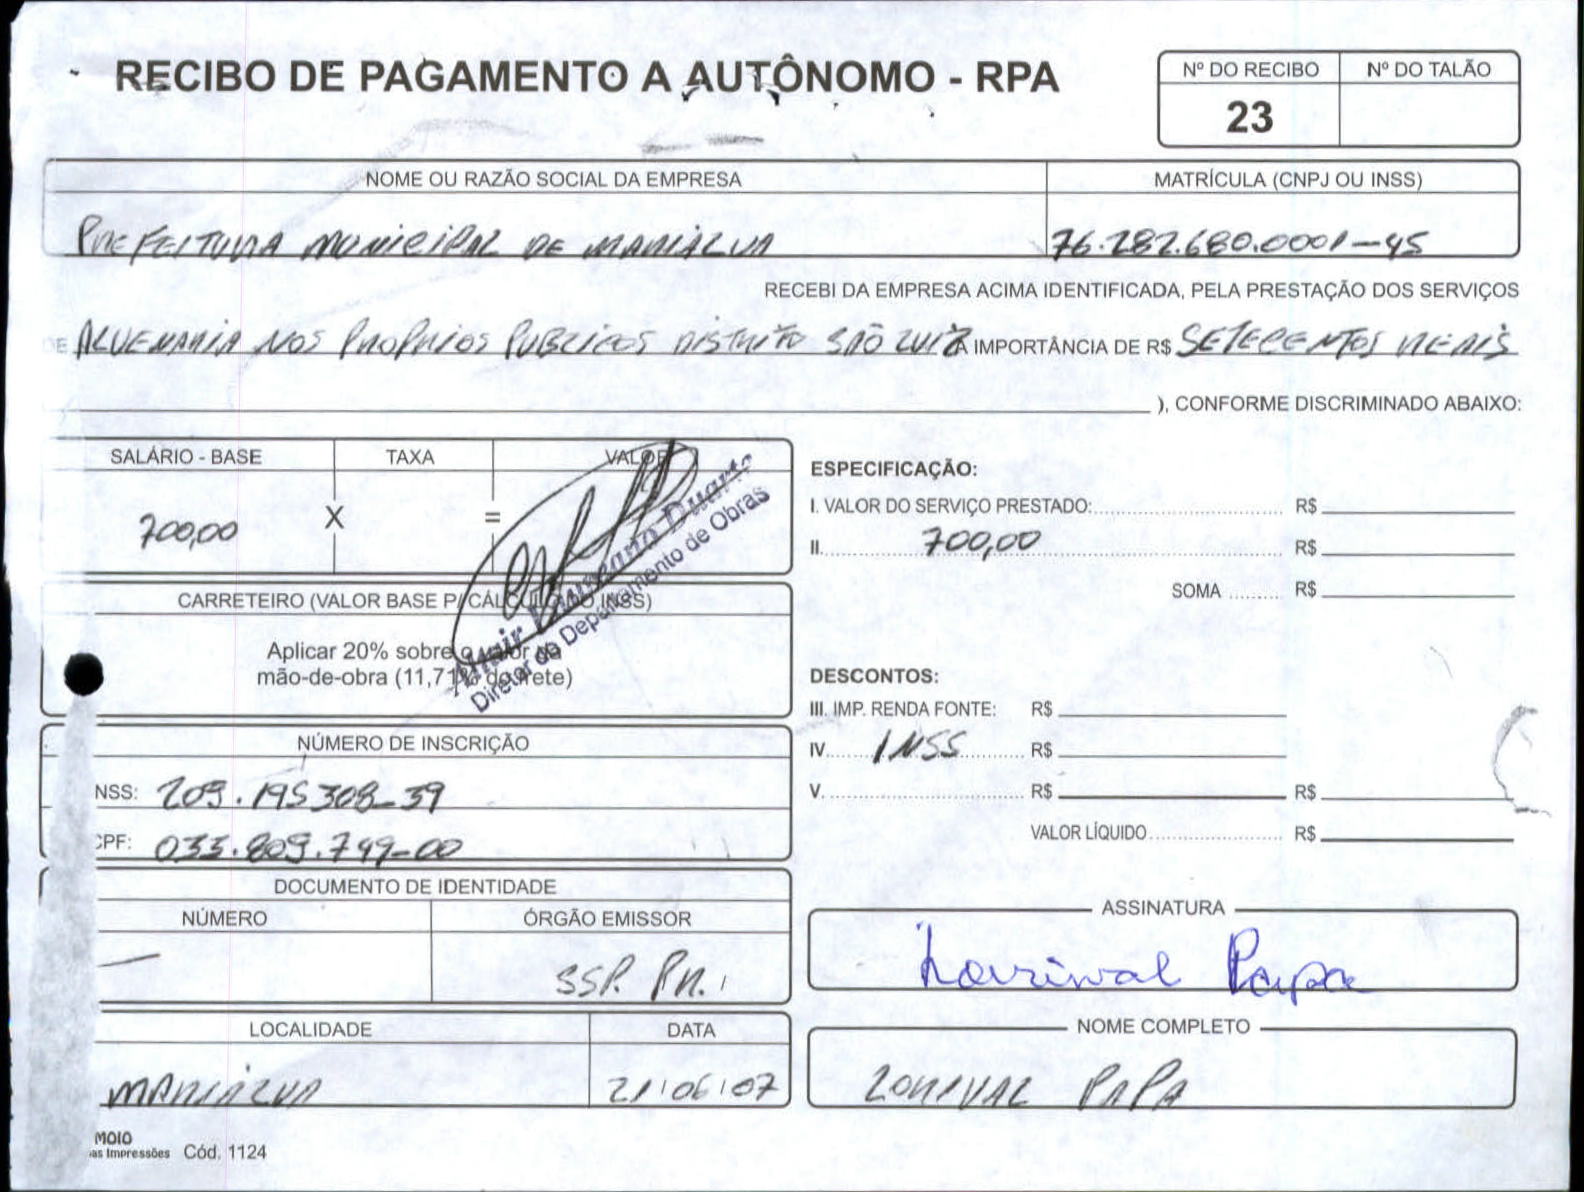 RECIBO DE PAGAMENTO A AUTÔNOMO - RPA
Nº DO RECIBO Nº DO TALÃO
23
NOME OU RAZÃO SOCIAL DA EMPRESA MATRÍCULA (CNPJ OU INSS)
PREFEITURA MUNICIPAL DE MARIALVA 76.282.680.0001-45
RECEBI DA EMPRESA ACIMA IDENTIFICADA, PELA PRESTAÇÃO DOS SERVIÇOS
DE ALVENARIA NOS PROPRIOS PUBLICOS DISTRITO SÃO LUIZ A IMPORTÂNCIA DE R$ SETECENTOS REAIS
), CONFORME DISCRIMINADO ABAIXO:
SALÁRIO - BASE TAXA VALOR
700,00 X =
CARRETEIRO (VALOR BASE P/ CÁLCULO DO INSS)
Aplicar 20% sobre o valor da
mão-de-obra (11,71% do frete)
Duarte
Diretor do Departamento de Obras
NÚMERO DE INSCRIÇÃO
NSS: 209.195308-39
CPF: 033.809.749-00
DOCUMENTO DE IDENTIDADE
NÚMERO ÓRGÃO EMISSOR
— SSP. PR.
LOCALIDADE DATA
MARIALVA 21/06/07
MOIO
as Impressões Cód. 1124
ESPECIFICAÇÃO:
I. VALOR DO SERVIÇO PRESTADO: R$
II. 700,00 R$
SOMA R$
DESCONTOS:
III. IMP. RENDA FONTE: R$
IV. INSS R$
V. R$ R$
VALOR LÍQUIDO R$
ASSINATURA
Lorival Papa
NOME COMPLETO
LORIVAL PAPA